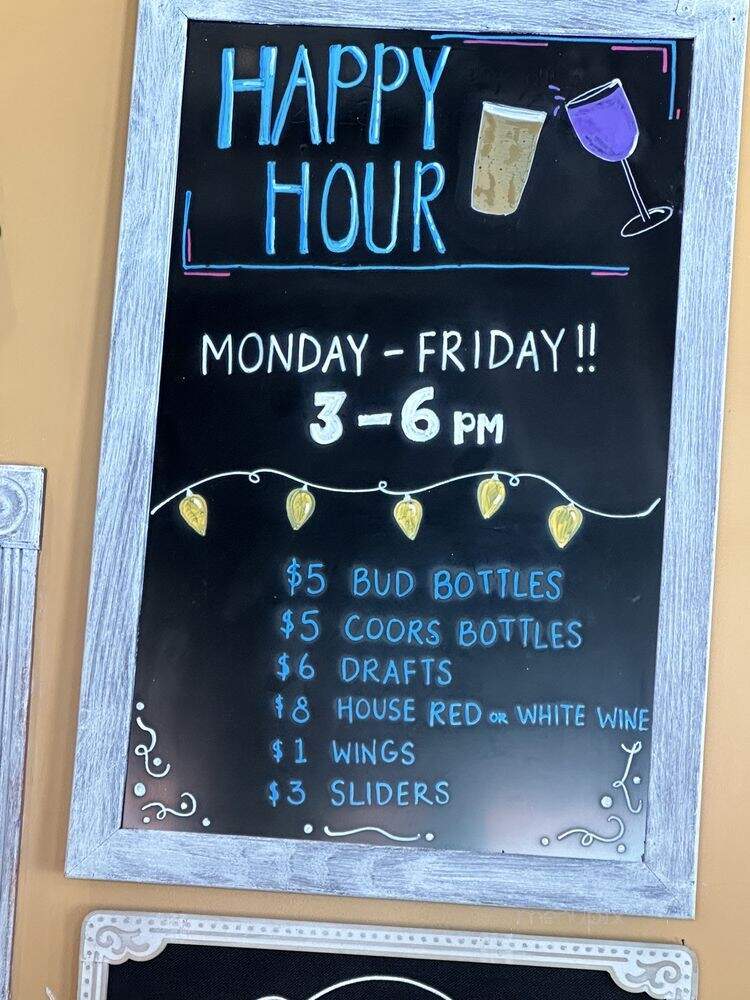 HAPPY
HOUR
MONDAY - FRIDAY!!
3-6 PM
$5 BUD BOTTLES
$5 COORS BOTTLES
$6 DRAFTS
$8 HOUSE RED OR WHITE WINE
$1 WINGS
$3 SLIDERS